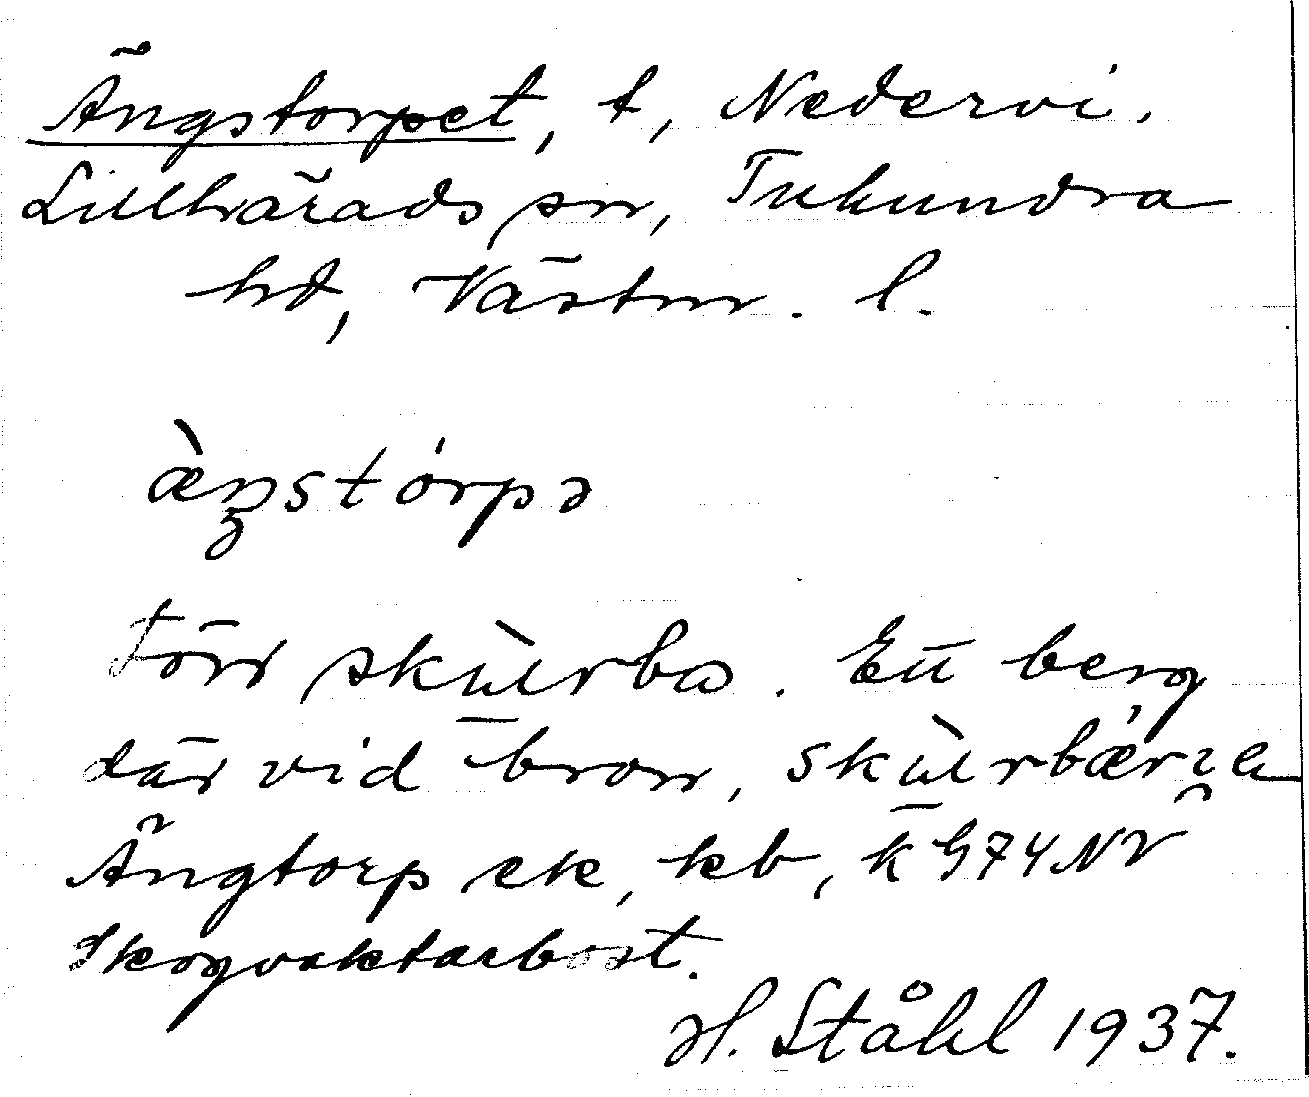 Ängstorpet, t, Nedervi.
Lillhärads sn, Tuhundra
hd, Västm. l.
æ̀ŋstórpə
Förr skùrbo. Ett berg
där vid bron, skùrbǽrje
Ängtorp ek, kb, k G74NV
Skogvaktarbost.
H. Ståhl 1937.